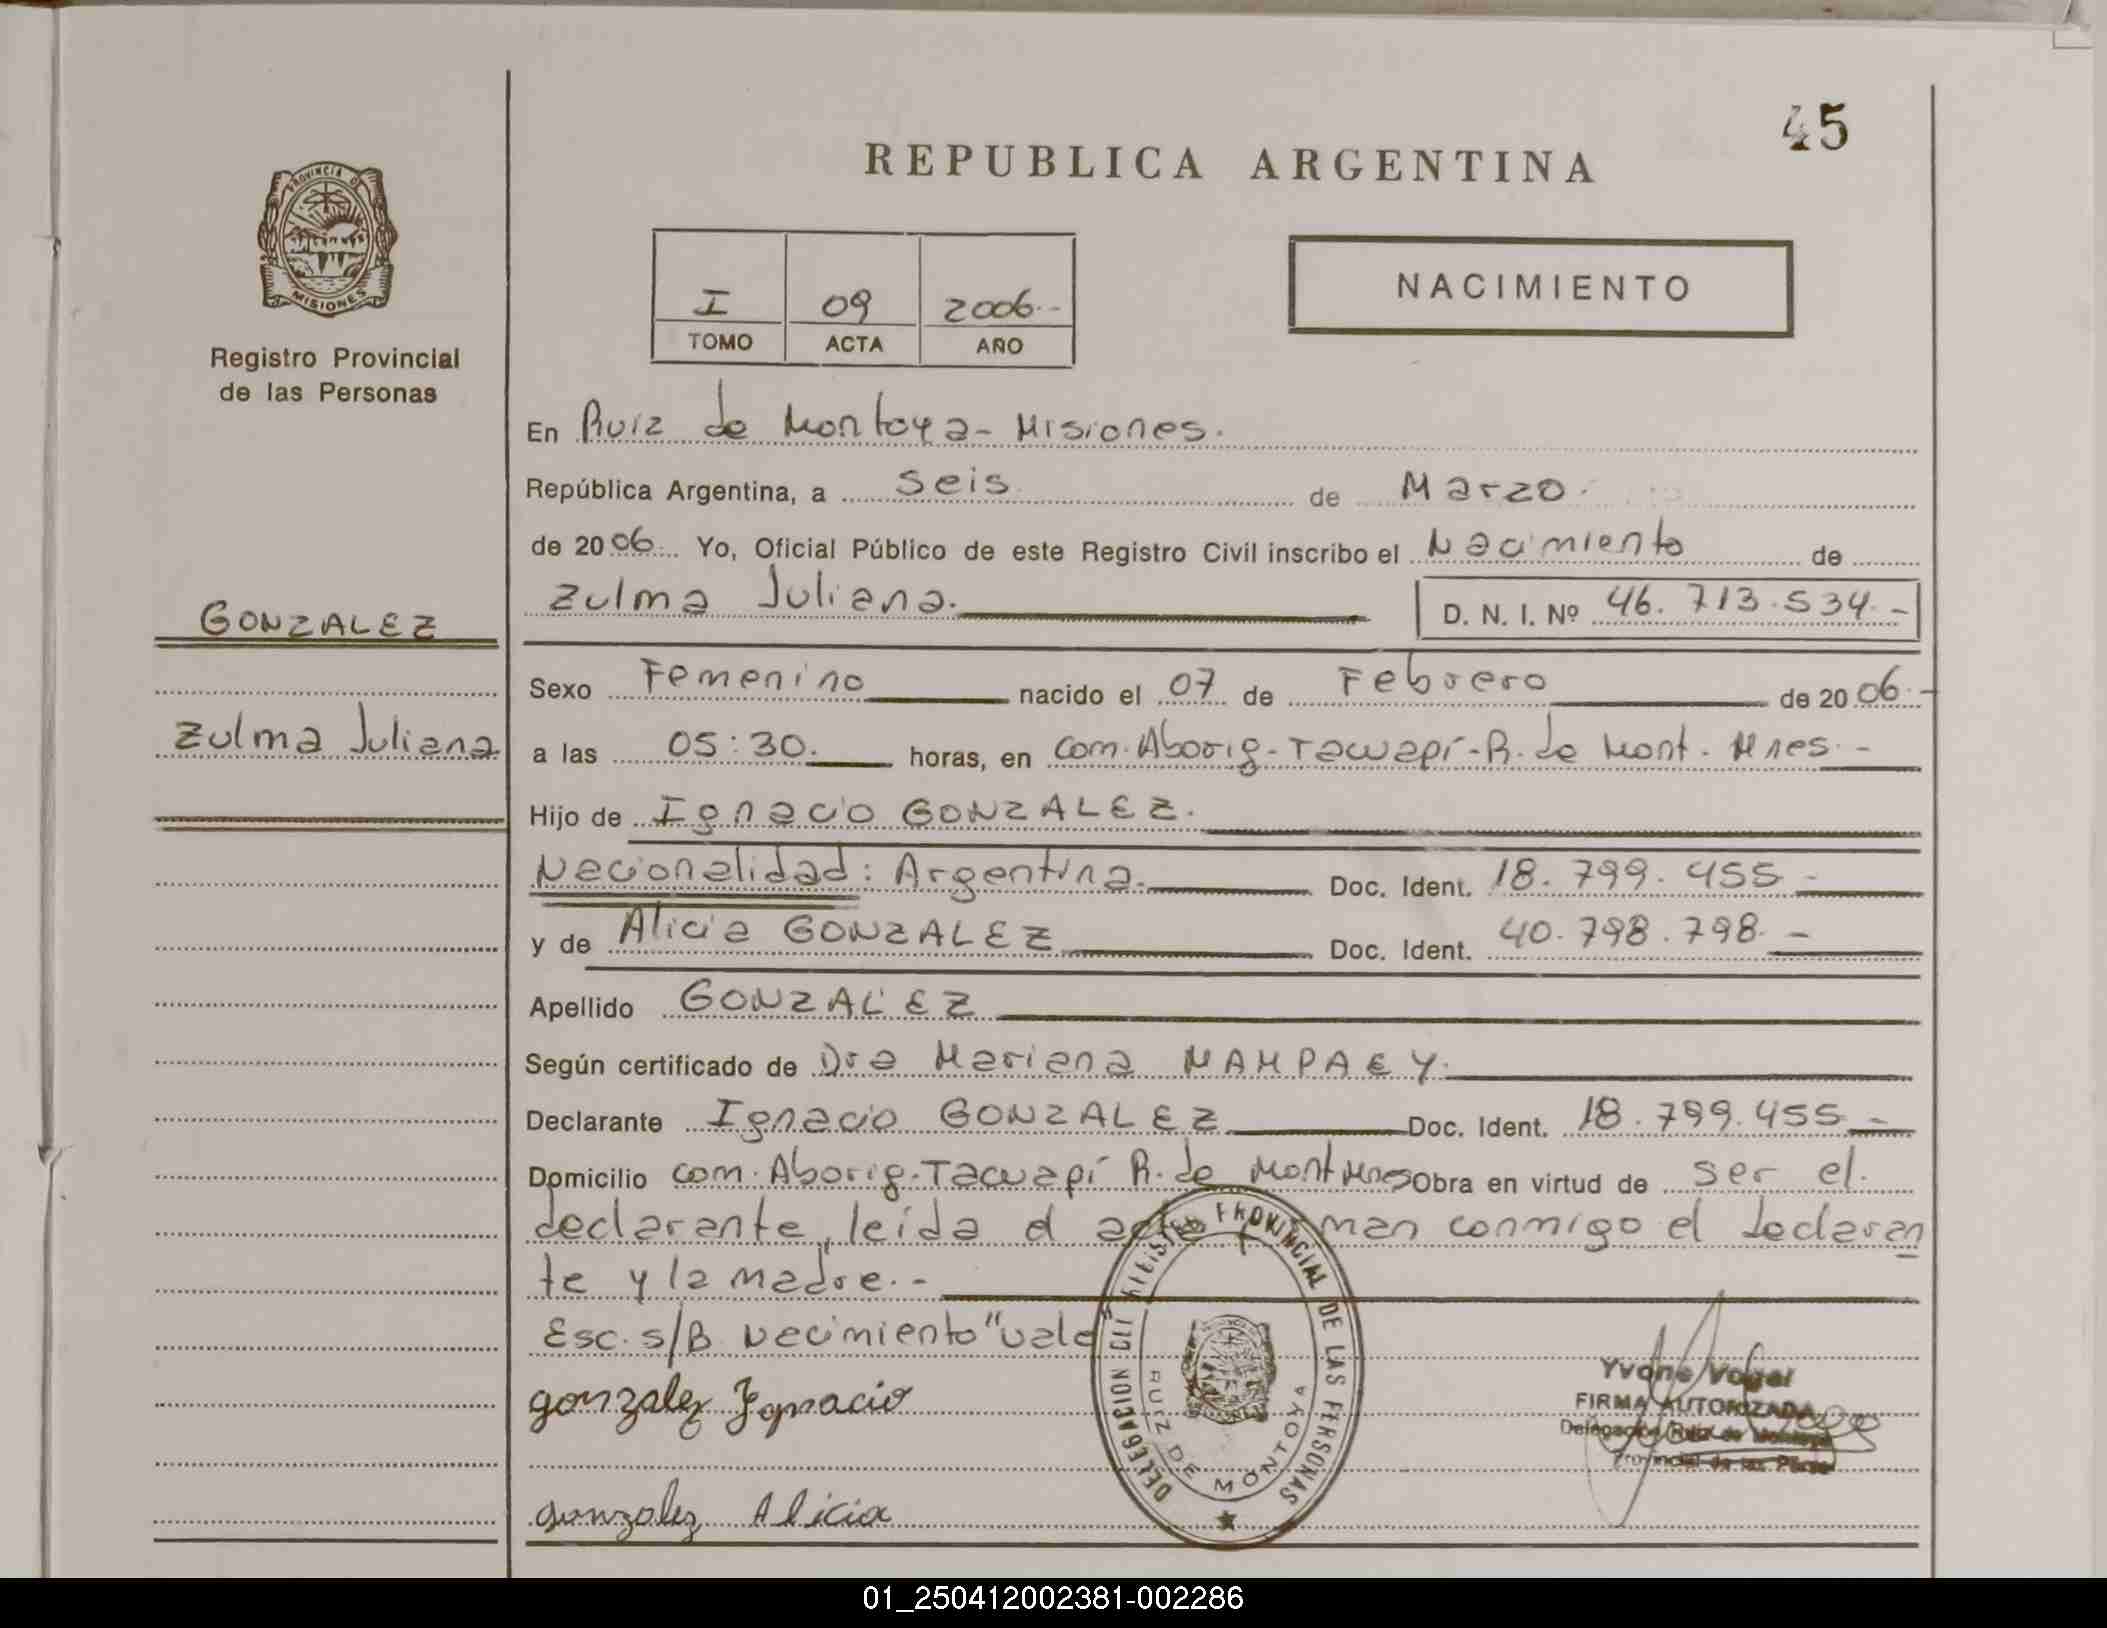 45
REPUBLICA ARGENTINA
PROVINCIA DE
MISIONES
Registro Provincial
de las Personas
I 09 2006.-
TOMO ACTA AÑO
NACIMIENTO
En Ruiz de Montoya - Misiones.
República Argentina, a seis de Marzo.
de 2006. Yo, Oficial Público de este Registro Civil inscribo el Nacimiento de
Zulma Juliana. D. N. I. Nº 46.713.534.-
GONZALEZ
Sexo Femenino nacido el 07 de Febrero de 2006.-
Zulma Juliana
a las 05:30. horas, en Com. Aborig-Tacuapí-R. de Mont. Mnes.-
Hijo de Ignacio GONZALEZ.
Nacionalidad: Argentina. Doc. Ident. 18.799.455.-
y de Alicia GONZALEZ Doc. Ident. 40.798.798.-
Apellido GONZALEZ
Según certificado de Dra Mariana MAMPAEY.
Declarante Ignacio GONZALEZ Doc. Ident. 18.799.455.-
Domicilio com. Aborig-Tacuapí R. de Mont Mnes Obra en virtud de ser el
declarante, leída el man conmigo el declaran
te y la madre.-
Esc. s/B Nacimiento "Vale
gonzalez Ignacio
gonzalez Alicia
PROVINCIAL DE LAS PERSONAS
DELEGACION
RUIZ DE MONTOYA
Yvone Vogel
FIRMA AUTORIZADA
Delegación Ruiz de Montoya
Provincial de las Pers
01_250412002381-002286